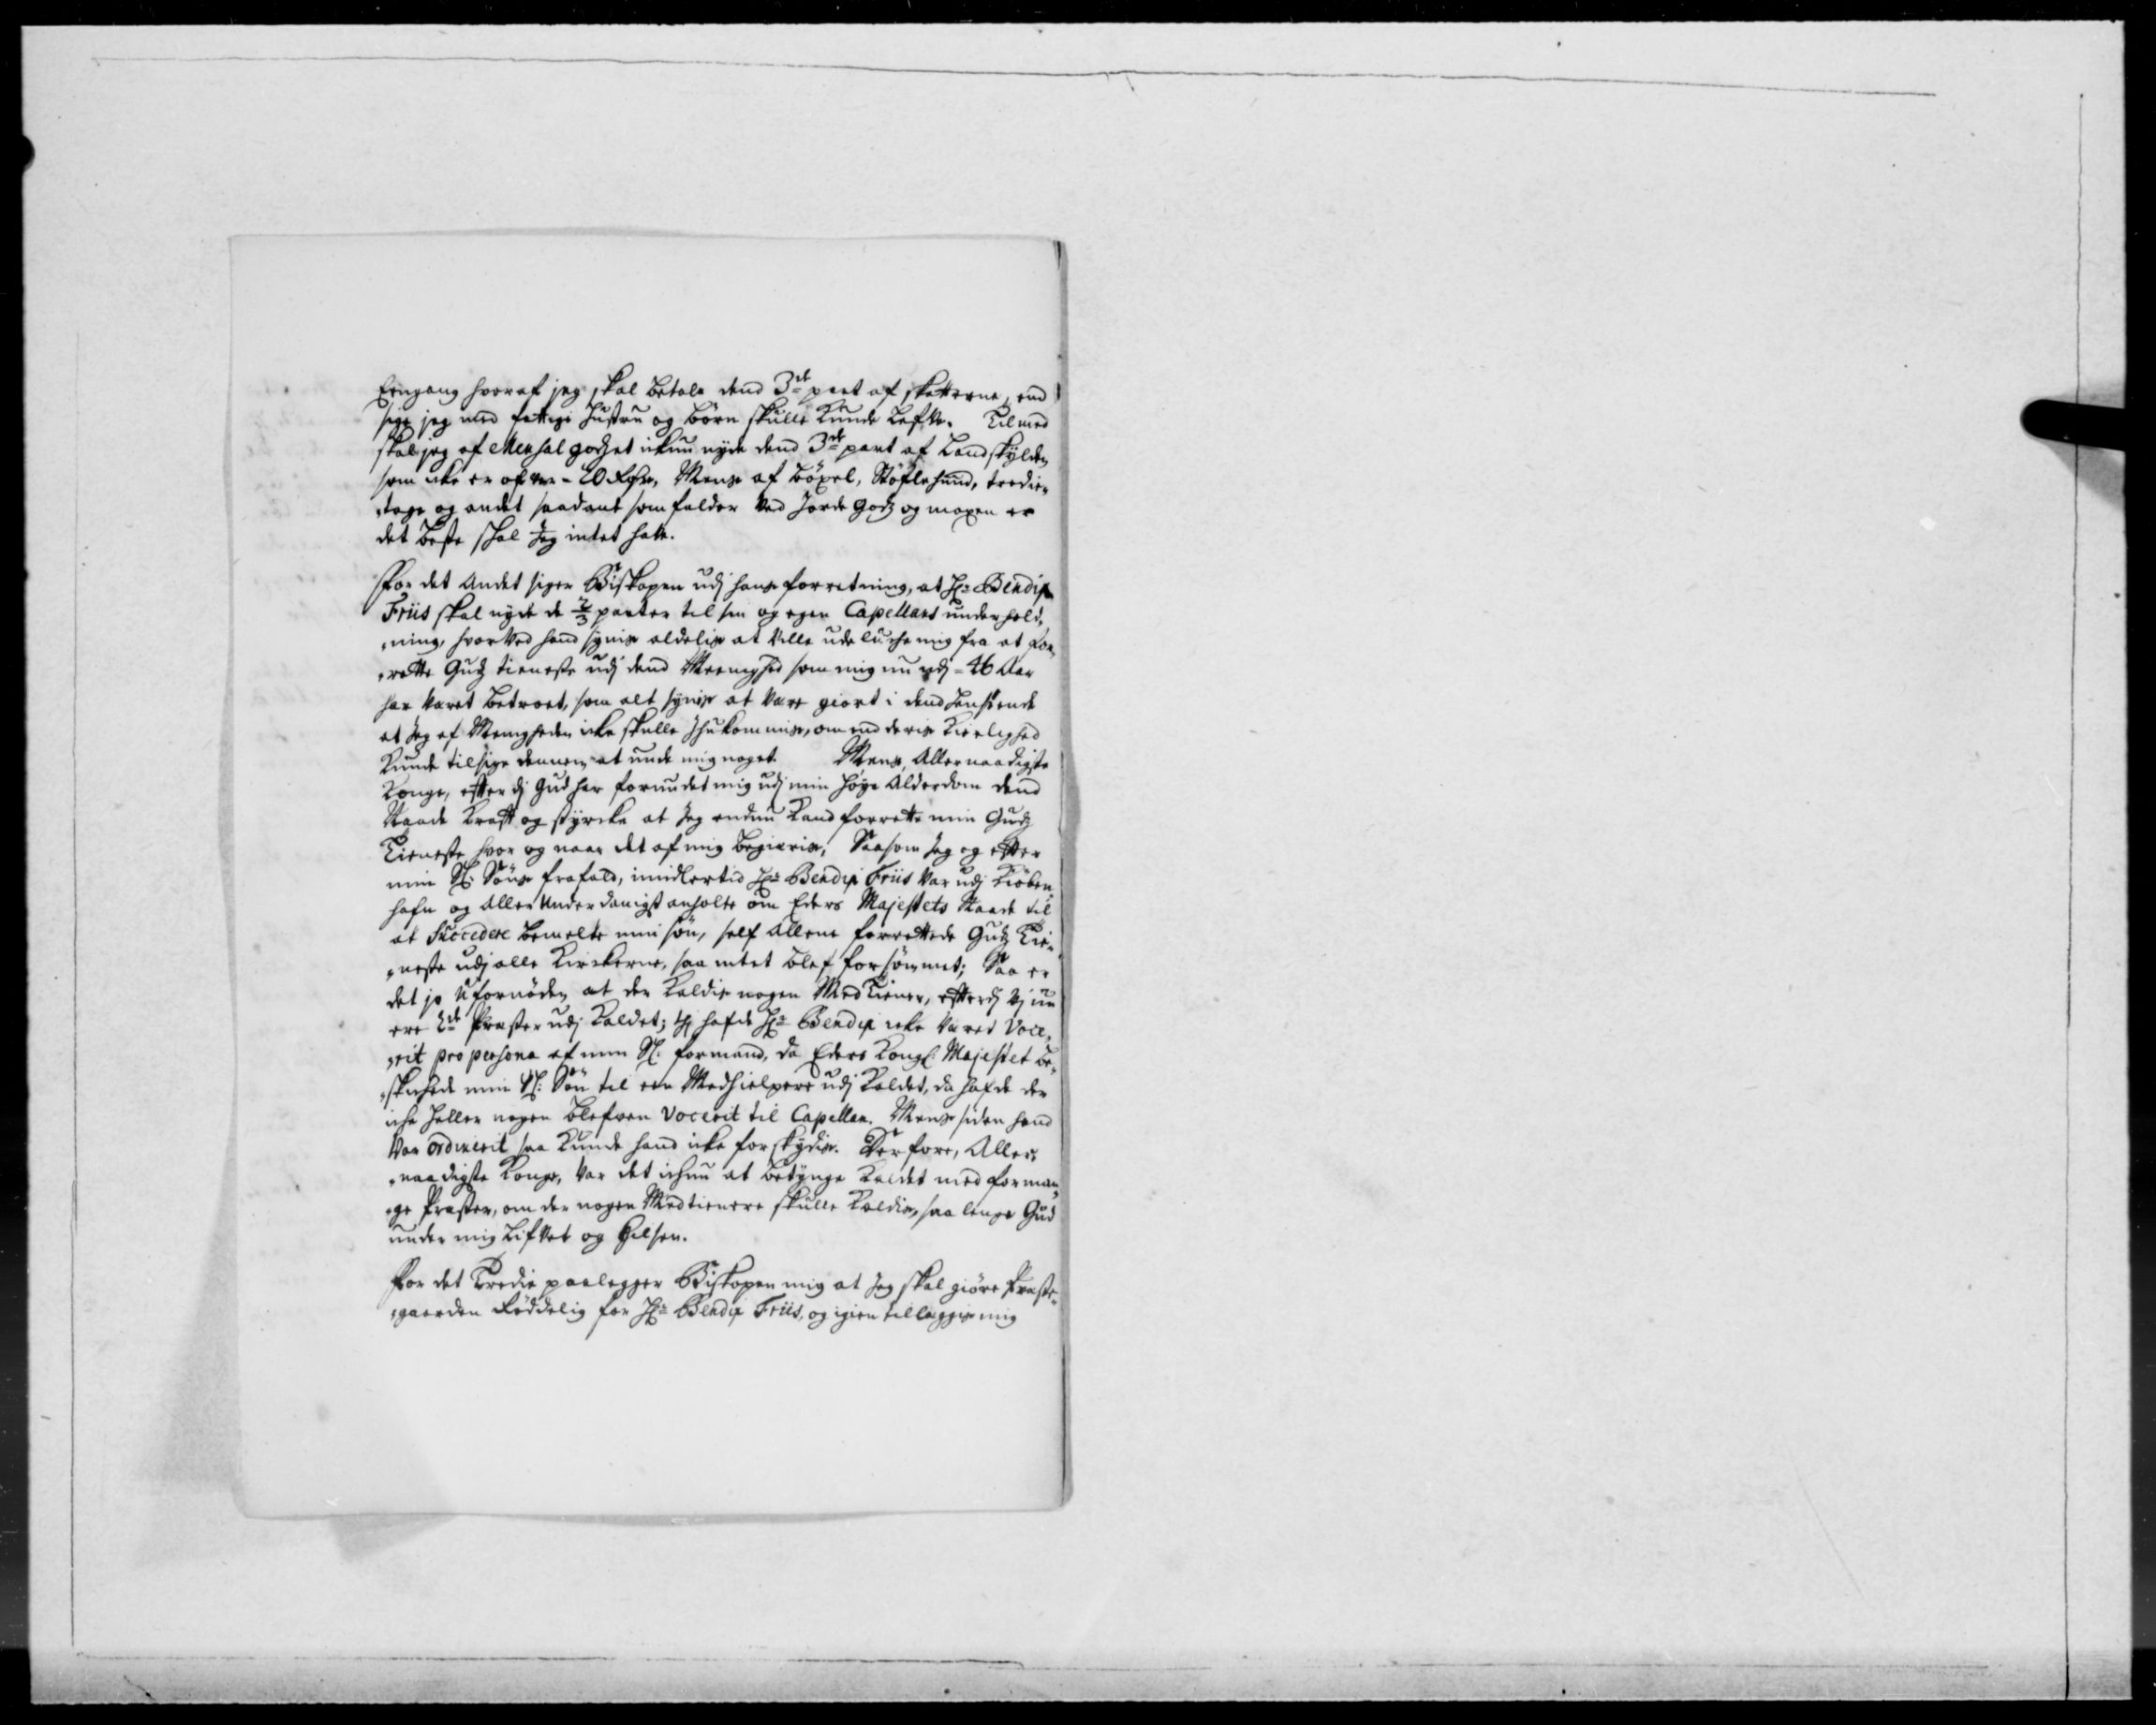 Eengang hvoraf jeg skal betale dend 3de part af skatterne, end
sige jeg med fattige Hustru og børn skulle kunde lefve. Tilmed
skal jeg af Mensal godzet ickun nyde dend 3de part af Landskylden
som icke er ofver - 20 Rdr, Mens af böxel, Støflehund, tredie„
„tage og andet saadant som falder ved Jorde Godz og mopen er
det beste skal Jeg intet hafve.
For det Andet siger Biskopen udj hans forretning, at Hr Bendix
Friis skal nyde de 2/3 parter til sin og egen Capellans underhold„
„ning, hvorved hand synis aldelis at ville udelucke mig fra at for„
„rette Gudz tieneste udj dend Meenighed som mig nu udj - 46 Aar
har været betroet, som alt synis at være giort i dend Henseende
at Jeg af Menigheden icke skulle Ihukommis, om end deris Kierlighed
kunde tilsige dennem at unde mig noget. Mens, Allernaadigste
Konge, efterdj Gud har forundet mig udj min høye Alderdom dend
Naade Kraft og styrcke at Jeg endnu kand forrette min Gudz
Tieneste hvor og naar det af mig begieris, Saasom Jeg og efter
min Sl. Søns frafald, imidlertid Hr Bendix Friis var udj Kiøben„
hafn og Allerunderdanigst anholte om Eders Majestets Naade til
at succedere bemelte min søn, self Allene forrettede Gudz Tie„
„neste udj alle Kirckerne, saa intet blef forsømmet; Saa er
det jo ufornøden at der kaldis nogen Medtiener, efterdj vj nu
ere 2de Præster udj Kaldet; thj hafde Hr Bendix icke været voce„
„rit pro persona af min Sl. formand, da Eders Kongl. Majestet be„
„skickede min Sl. Søn til een Medhielpere udj Kaldet, da hafde der
icke heller nogen blefven vocerit til Capellan. Mens siden hand
var ordinerit saa kunde hand icke forskydis. Derfore, Aller„
„naadigste Konge, var det ickun at betynge Kaldet med forman„
„ge Præster, om der nogen Medtienere skulle kaldis, saa lenge Gud
under mig Lifvet og Helsen.
For det Tredie paalegger Biskopen mig at Jeg skal giøre Præste„
„gaarden Røddelig for Hr Bendix Friis, og igien tillæggis mig